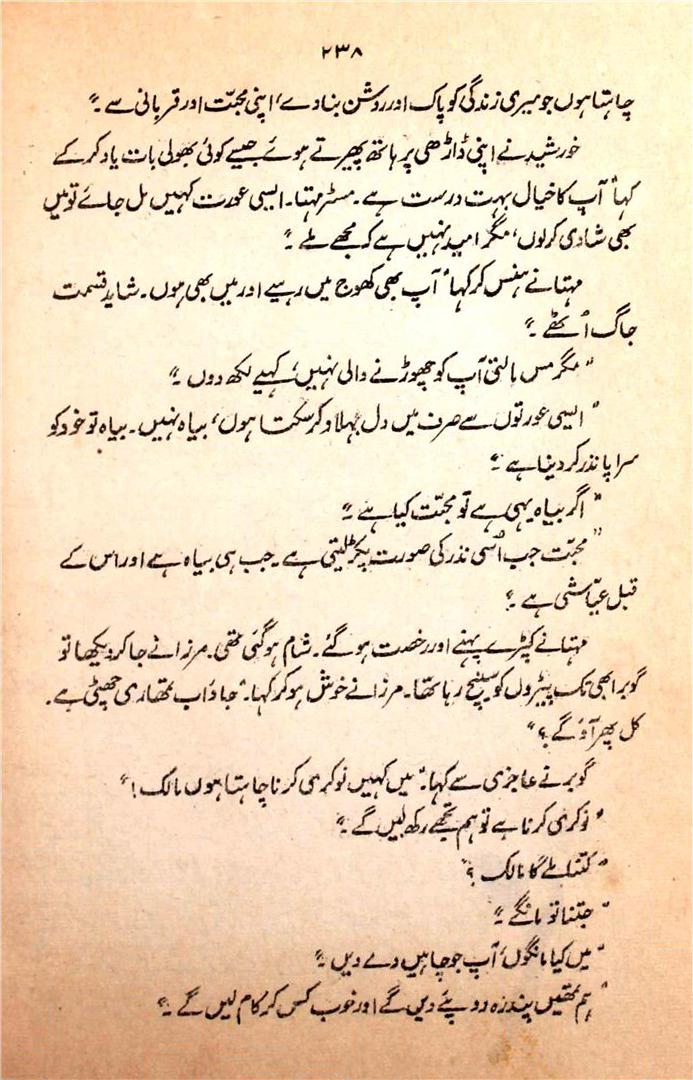 ۲۳۸
چاہتا ہوں جو میری زندگی کو پاک اور روشن بنا دے، اپنی محبّت اور قربانی سے۔"
خورشید نے اپنی ڈاڑھی پر ہاتھ پھیرتے ہوئے جیسے کوئی بھولی بات یاد کر کے
کہا "آپ کا خیال بہت درست ہے۔ مسٹر مہتا۔ ایسی عورت کہیں مل جائے تو میں
بھی شادی کر لوں، مگر امید نہیں ہے کہ مجھے ملے۔"
مہتا نے ہنس کر کہا "آپ بھی کھوج میں رہیے اور میں بھی ہوں۔ شاید قسمت
جاگ اُٹھے۔"
"مگر مس مالتی آپ کو چھوڑنے والی نہیں، کہیے لکھ دوں۔"
"ایسی عورتوں سے صرف میں دل بہلاؤ کر سکتا ہوں، بیاہ نہیں۔ بیاہ تو خود کو
سراپا نذر کر دینا ہے۔"
"اگر بیاہ یہی ہے تو محبّت کیا ہے۔"
"محبّت جب اُسی نذر کی صورت پکڑ لیتی ہے۔ جب ہی بیاہ ہے اور اس کے
قبل عیّاشی ہے۔"
مہتا نے کپڑے پہنے اور رخصت ہو گئے۔ شام ہو گئی تھی۔ مرزا نے جا کر دیکھا تو
گوبر ابھی تک پیڑوں کو سینچ رہا تھا۔ مرزا نے خوش ہو کر کہا۔ "جاؤ اب تمھاری چھٹی ہے۔
کل پھر آؤ گے؟"
گوبر نے عاجزی سے کہا۔ "میں کہیں نوکری کرنا چاہتا ہوں مالک!"
"نوکری کرنا ہے تو ہم تجھے رکھ لیں گے۔"
"کتنا ملے گا مالک؟"
"جتنا تو مانگے۔"
"میں کیا مانگوں، آپ جو چاہیں دے دیں۔"
"ہم تمھیں پندرہ روپئے دیں گے اور خوب کس کر کام لیں گے۔"